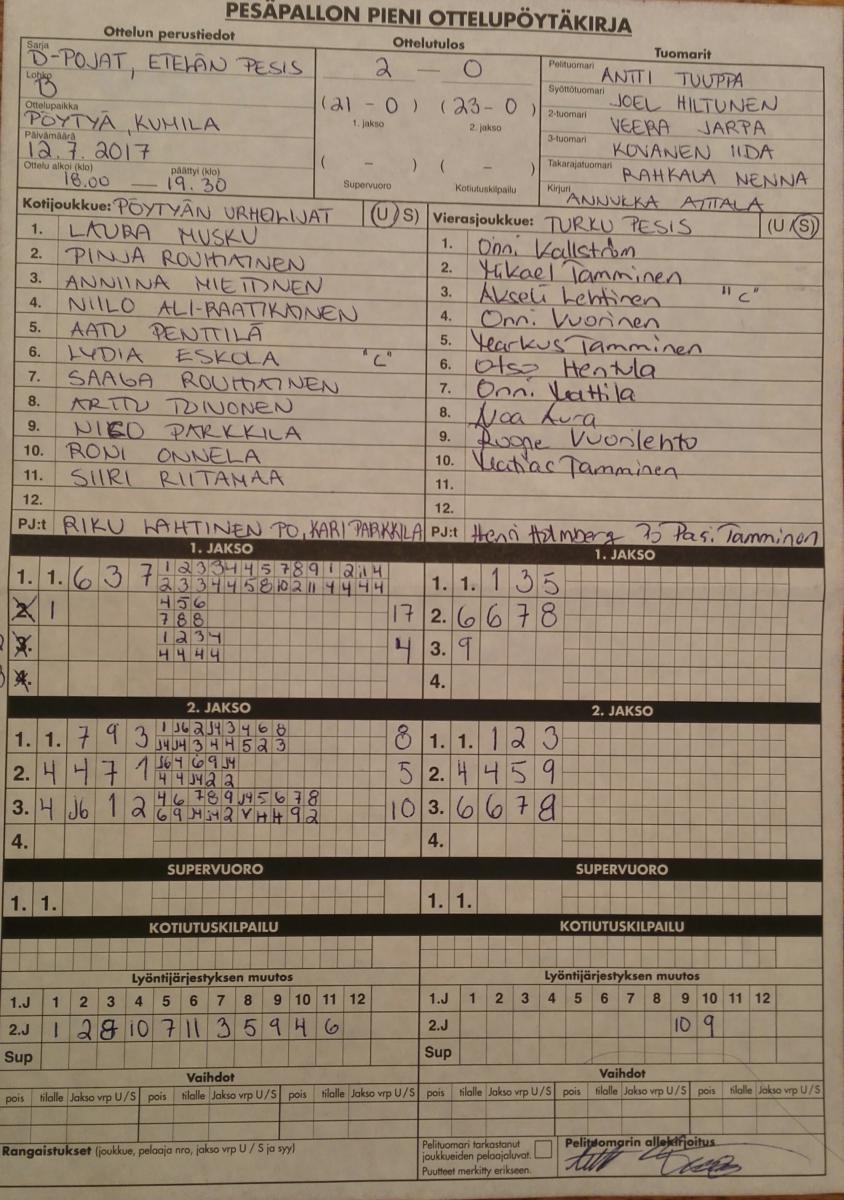 PESÄPALLON PIENI OTTELUPÖYTÄKIRJA
Ottelun perustiedot
Sarja
D-POJAT, ETELÄN PESIS
Lohko
B
Ottelupaikka
PÖYTYÄ, KUMILA
Päivämäärä
12.7.2017
Ottelu alkoi (klo) päättyi (klo)
18.00 — 19.30
Ottelutulos
2 — 0
(21 - 0) (23 - 0)
1. jakso 2. jakso
( - ) ( - )
Supervuoro Kotiutuskilpailu
Tuomarit
Pelituomari ANTTI TUUPPA
Syöttötuomari JOEL HILTUNEN
2-tuomari VEERA JARPA
3-tuomari KOVANEN IIDA
Takarajatuomari RAHKALA NENNA
Kirjuri ANNUKKA ATTALA
Kotijoukkue: PÖYTYÄN URHEILIJAT (U S)
1. LAURA MUSKU
2. PINJA ROUHIAINEN
3. ANNIINA MIETTINEN
4. NIILO ALI-RAATIKAINEN
5. AATU PENTTILÄ
6. LYDIA ESKOLA "C"
7. SAAGA ROUHIAINEN
8. ARTTU TOIVONEN
9. NICO PARKKILA
10. RONI ONNELA
11. SIIRI RIITAMAA
12.
PJ:t RIKU LAHTINEN PO, KARI PARKKILA
Vierasjoukkue: TURKU PESIS (U S)
1. Onni Kallström
2. Mikael Tamminen
3. Akseli Lehtinen "C"
4. Onni Vuorinen
5. Markus Tamminen
6. Otso Hentula
7. Onni Mattila
8. Noa Aura
9. Roope Vuorilehto
10. Matias Tamminen
11.
12.
PJ:t Henri Holmberg Pasi Tamminen
1. JAKSO
1. 1. 6 3 7 1 2 3 3 4 4 5 7 8 9 1 2 11 4
2 3 3 4 4 5 8 10 2 11 4 4 4 4
2. 1 4 5 6 17
7 8 8
3. 1 2 3 4 4
4 4 4 4
4.
1. JAKSO
1. 1. 1 3 5
2. 6 6 7 8
3. 9
4.
2. JAKSO
1. 1. 7 9 3 1 J6 2 J4 3 4 6 8 8
J4 J4 3 4 4 5 2 3
2. 4 4 7 1 J6 4 6 9 J4 5
4 4 J4 2 2
3. 4 J6 1 2 4 6 7 8 9 J4 5 6 7 8 10
6 9 J4 J4 2 V H H 9 2
4.
2. JAKSO
1. 1. 1 2 3
2. 4 4 5 9
3. 6 6 7 8
4.
SUPERVUORO
1. 1.
SUPERVUORO
1. 1.
KOTIUTUSKILPAILU
KOTIUTUSKILPAILU
Lyöntijärjestyksen muutos
1.J 1 2 3 4 5 6 7 8 9 10 11 12
2.J 1 2 8 10 7 11 3 5 9 4 6
Sup
Lyöntijärjestyksen muutos
1.J 1 2 3 4 5 6 7 8 9 10 11 12
2.J 10 9
Sup
Vaihdot
pois tilalle Jakso vrp U/S pois tilalle Jakso vrp U/S pois tilalle Jakso vrp U/S
Vaihdot
pois tilalle Jakso vrp U/S pois tilalle Jakso vrp U/S pois tilalle Jakso vrp U/S
Rangaistukset (joukkue, pelaaja nro, jakso vrp U / S ja syy)
Pelituomari tarkastanut
joukkueiden pelaajaluvat.
Puutteet merkitty erikseen.
Pelituomarin allekirjoitus